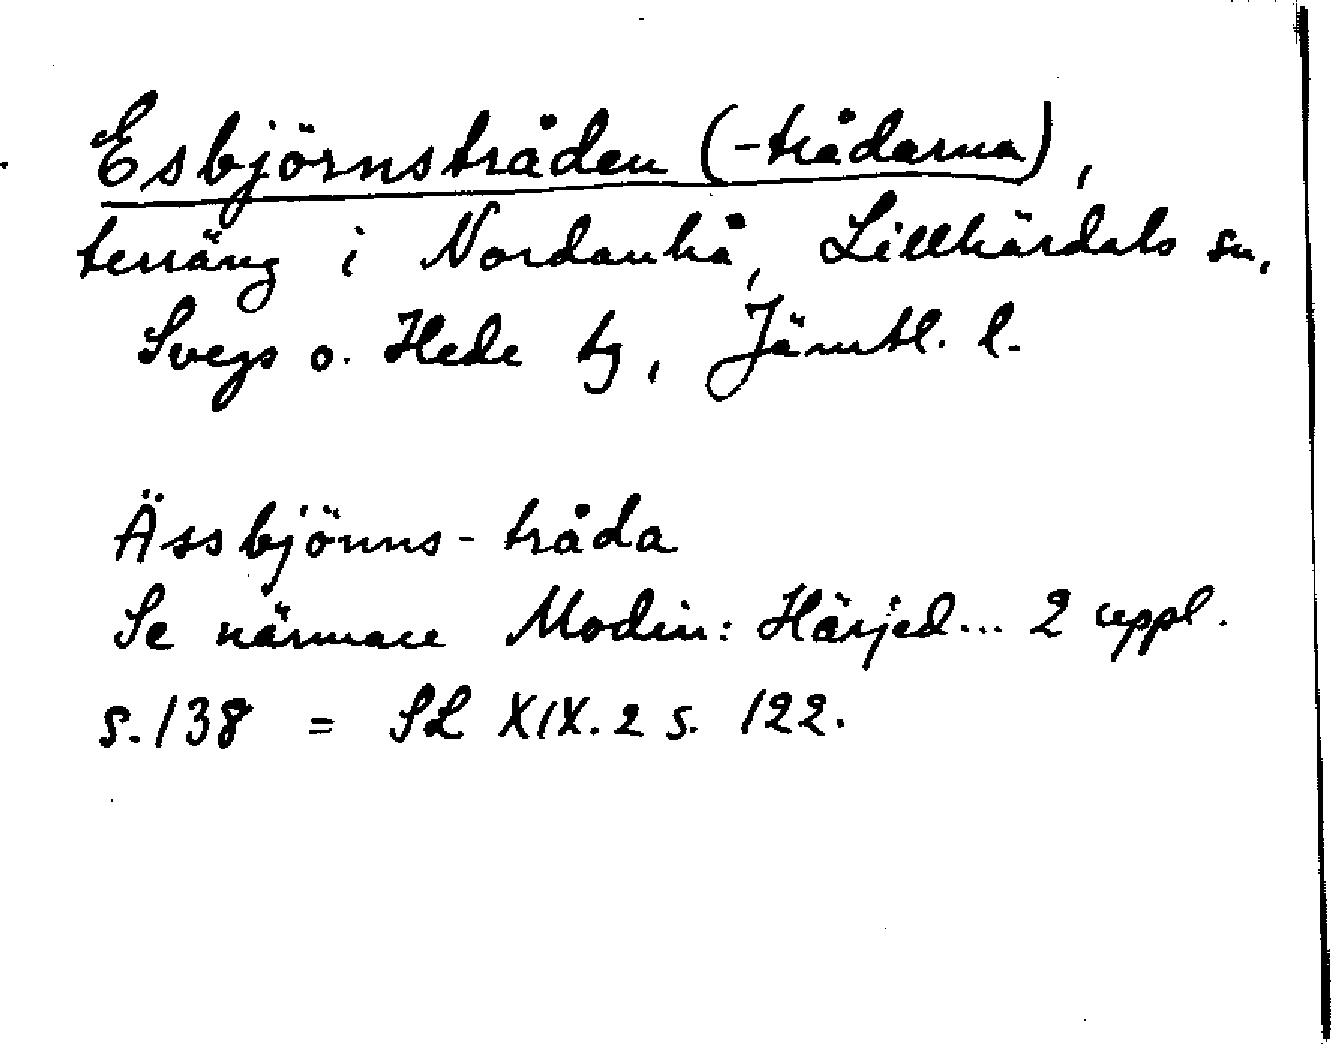 Esbjörnstråden (-trådarna),
terräng i Nordanhå, Lillhärdals sn,
Svegs o. Hede tg, Jämtl. l.
Ässbjönns-tråda
Se närmare Modin: Härjed... 2 uppl.
s. 138 = SL XIX. 2 s. 122.